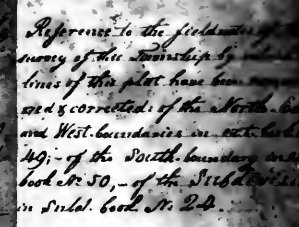 Reference to the fieldnotes of the
survey of this Township by
lines of this plot have been
ned & corrected: of the North-Ea
and West-boundaries in ext. book
49;- of the South-boundary in
book No 50,- of the Subdivisi
in Subd. book No. 24.